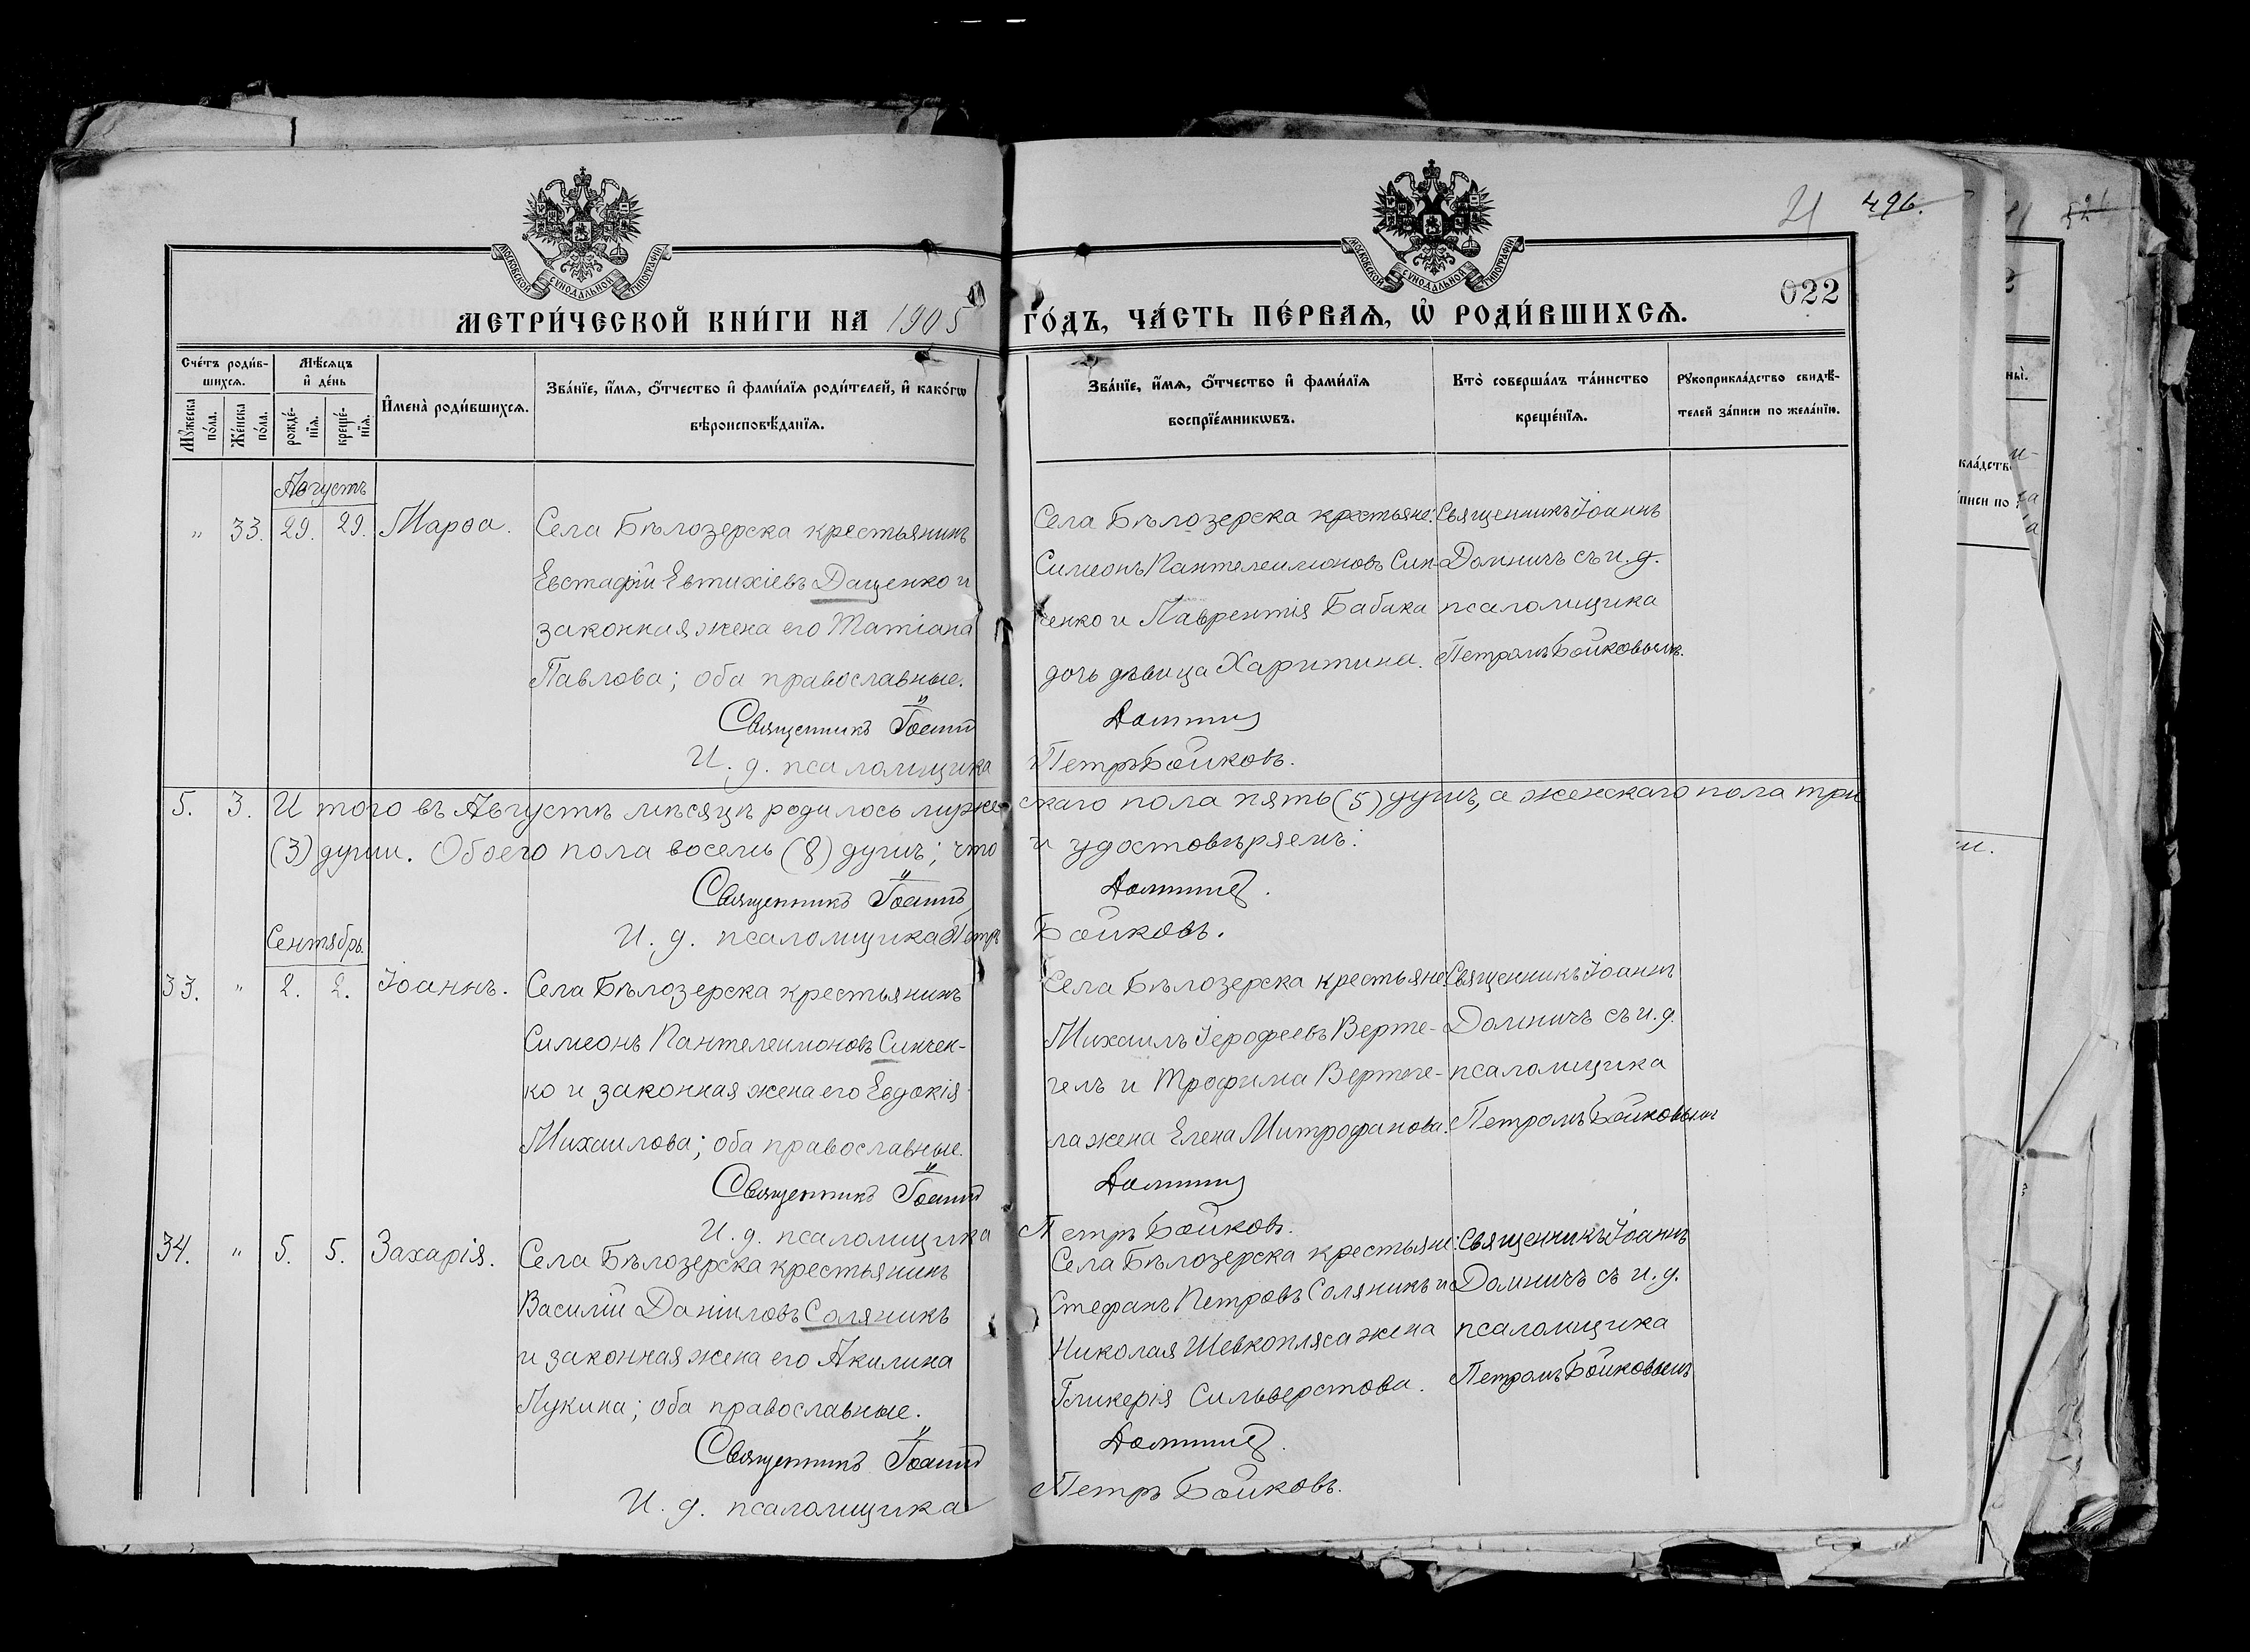 21 496.
022
МОСКОВСКОЙ СѴНОДАЛЬНОЙ ТИПОГРАФІИ
МОСКОВСКОЙ СѴНОДАЛЬНОЙ ТИПОГРАФІИ
МЕТРИ́ЧЕСКОЙ КНИ́ГИ НА 1905 ГО́ДЪ, ЧА́СТЬ ПЕ́РВАѦ, Ѽ РОДИ́ВШИХСѦ.
Сче́тъ роди́в-
шихсѧ.
Мꙋ́жеска
по́ла.
Же́нска
по́ла.
Мѣ́сѧцъ
и҆ де́нь
рожде́-
нїѧ.
креще́-
нїѧ.
И҆мена̀ роди́вшихсѧ.
Зва́нїе, и҆́мѧ, ѻ҆́тчество и҆ фами́лїѧ роди́телей, и҆ како́гѡ
вѣроисповѣ́данїѧ.
Зва́нїе, и҆́мѧ, ѻ҆́тчество и҆ фами́лїѧ
воспрїе́мникѡвъ.
Кто̀ соверша́лъ та́инство
креще́нїѧ.
Рꙋкоприкла́дство свидѣ́-
телей за́писи по жела́нїю.
Августъ
" 33. 29. 29. Марѳа.
Села Бѣлозерска крестьянинъ
Евстафій Евтихіевъ Даценко и
законная жена его Татіана
Павлова; оба православные.
Священникъ Іоаннъ
И. д. псаломщика
Села Бѣлозерска крестьяне:
Симеонъ Пантелеимоновъ Син-
ченко и Лаврентія Бабака
дочь дѣвица Харитина.
Домничъ
Петръ Бойковъ.
Священникъ Іоаннъ
Домничъ съ и. д.
псаломщика
Петромъ Бойковымъ.
5. 3. И того въ Августѣ мѣсяцѣ родилось муже-
скаго пола пять (5) душъ, а женскаго пола три
(3) души. Обоего пола восемь (8) душъ; что
и удостовѣряемъ:
Священникъ Іоаннъ Домничъ.
И. д. псаломщика Петръ Бойковъ.
Сентябрь
33. " 2. 2. Іоаннъ.
Села Бѣлозерска крестьянинъ
Симеонъ Пантелеимоновъ Синчен-
ко и законная жена его Евдокія
Михаилова; оба православные.
Священникъ Іоаннъ
И. д. псаломщика
Села Бѣлозерска крестьяне:
Михаилъ Іерофеевъ Верте-
гелъ и Трофима Вертеге-
ла жена Елена Митрофанова.
Домничъ
Петръ Бойковъ.
Священникъ Іоаннъ
Домничъ съ и. д.
псаломщика
Петромъ Бойковымъ
34. " 5. 5. Захарія.
Села Бѣлозерска крестьянинъ
Василій Даніиловъ Соляникъ
и законная жена его Акилина
Лукина; оба православные.
Священникъ Іоаннъ
И. д. псаломщика
Села Бѣлозерска крестьяне:
Стефанъ Петровъ Соляникъ и
Николая Шевкопляса жена
Гликерія Сильверстова.
Домничъ.
Петръ Бойковъ.
Священникъ Іоаннъ
Домничъ съ и. д.
псаломщика
Петромъ Бойковымъ